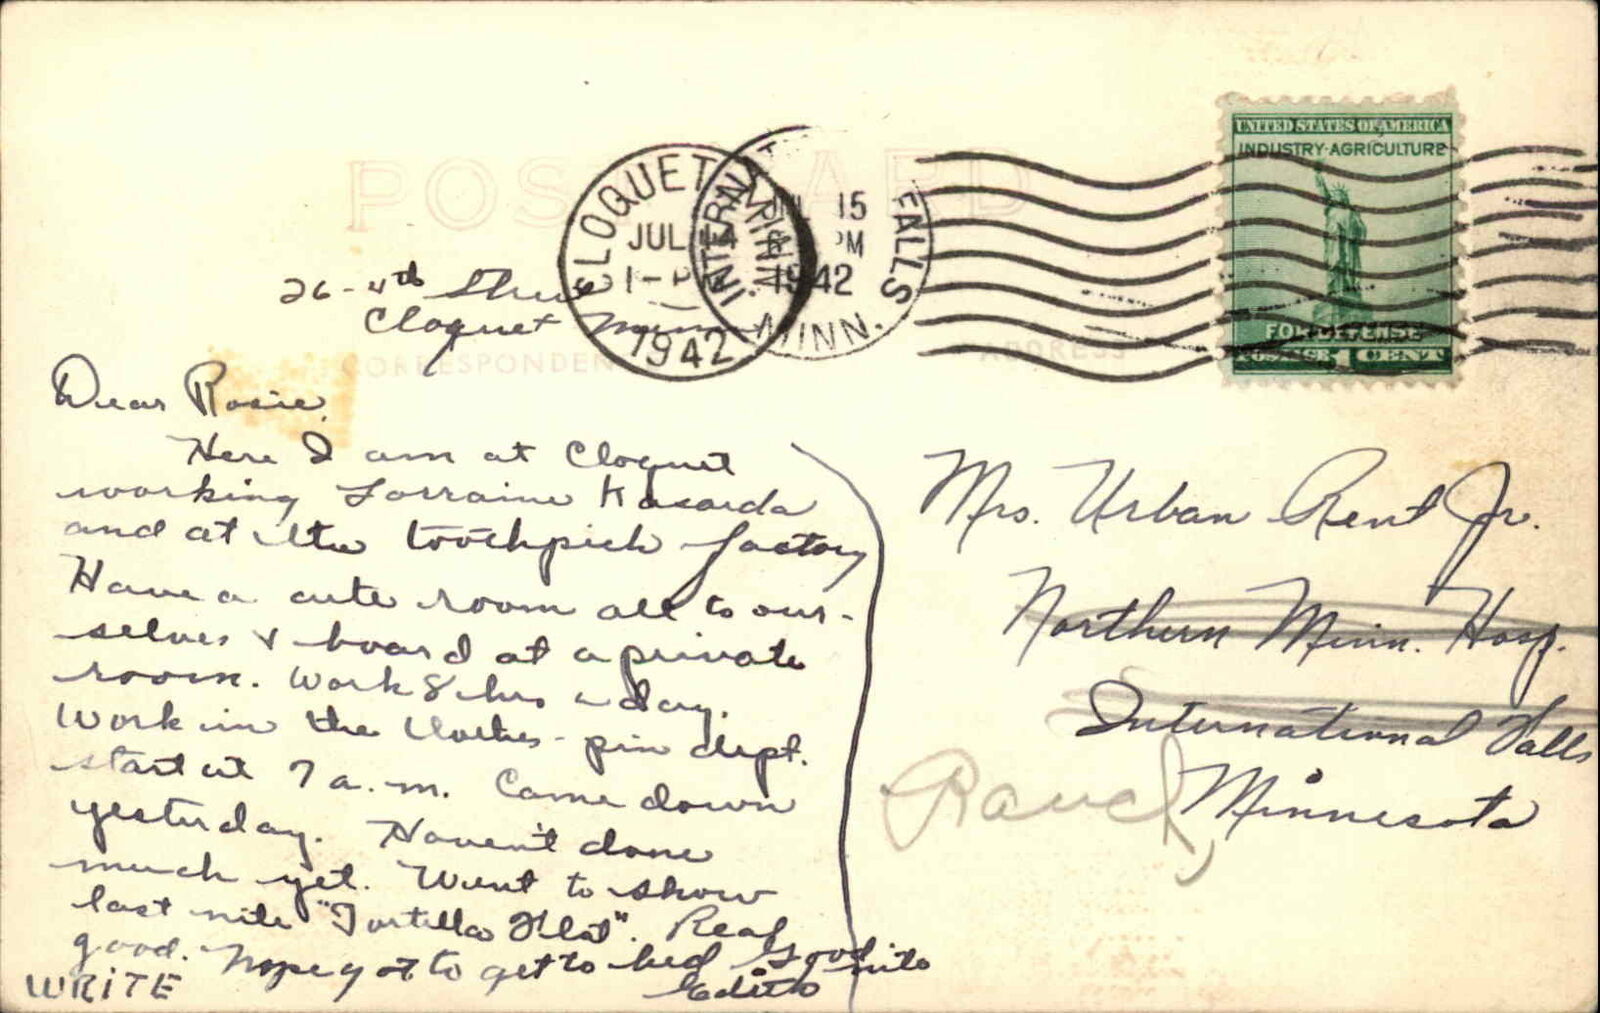 POST CARD
CLOQUET MINN.
JUL 14
1942
INTERNAT FALLS MINN.
JUL 15
PM
1942
UNITED STATES OF AMERICA
INDUSTRY·AGRICULTURE
FOR DEFENSE
POSTAGE 1 CENT
26-4th Street
Cloquet Minn
CORRESPONDENCE
ADDRESS
Dear Rosie,
Here I am at Cloquet
working Lorraine Kasarda
and at the toothpick factory
Have a cute room all to our-
selves & board at a private
room. Work 8 hrs a day.
Work in the Clothes-pin dept.
start at 7 a.m. Came down
yesterday. Haven't done
much yet. Went to show
last nite "Tortilla Flat". Real
good. got to get to bed Good nite
Edito
WRiTE
Mrs. Urban Rent Jr.
Northern Minn. Hosp.
International Falls
Minnesota